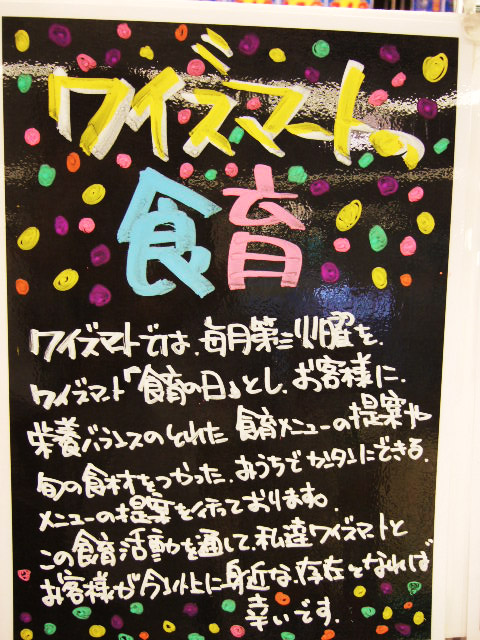 ワイズマートの
食育
ワイズマートでは、毎月第三火曜を、
ワイズマート「食育の日」とし、お客様に、
栄養バランスのとれた 食育メニューの提案や
旬の食材をつかった、おうちでカンタンにできる、
メニューの提案を行っております。
この食育活動を通して、私達ワイズマートと
お客様が今以上に身近な存在となれば
幸いです。